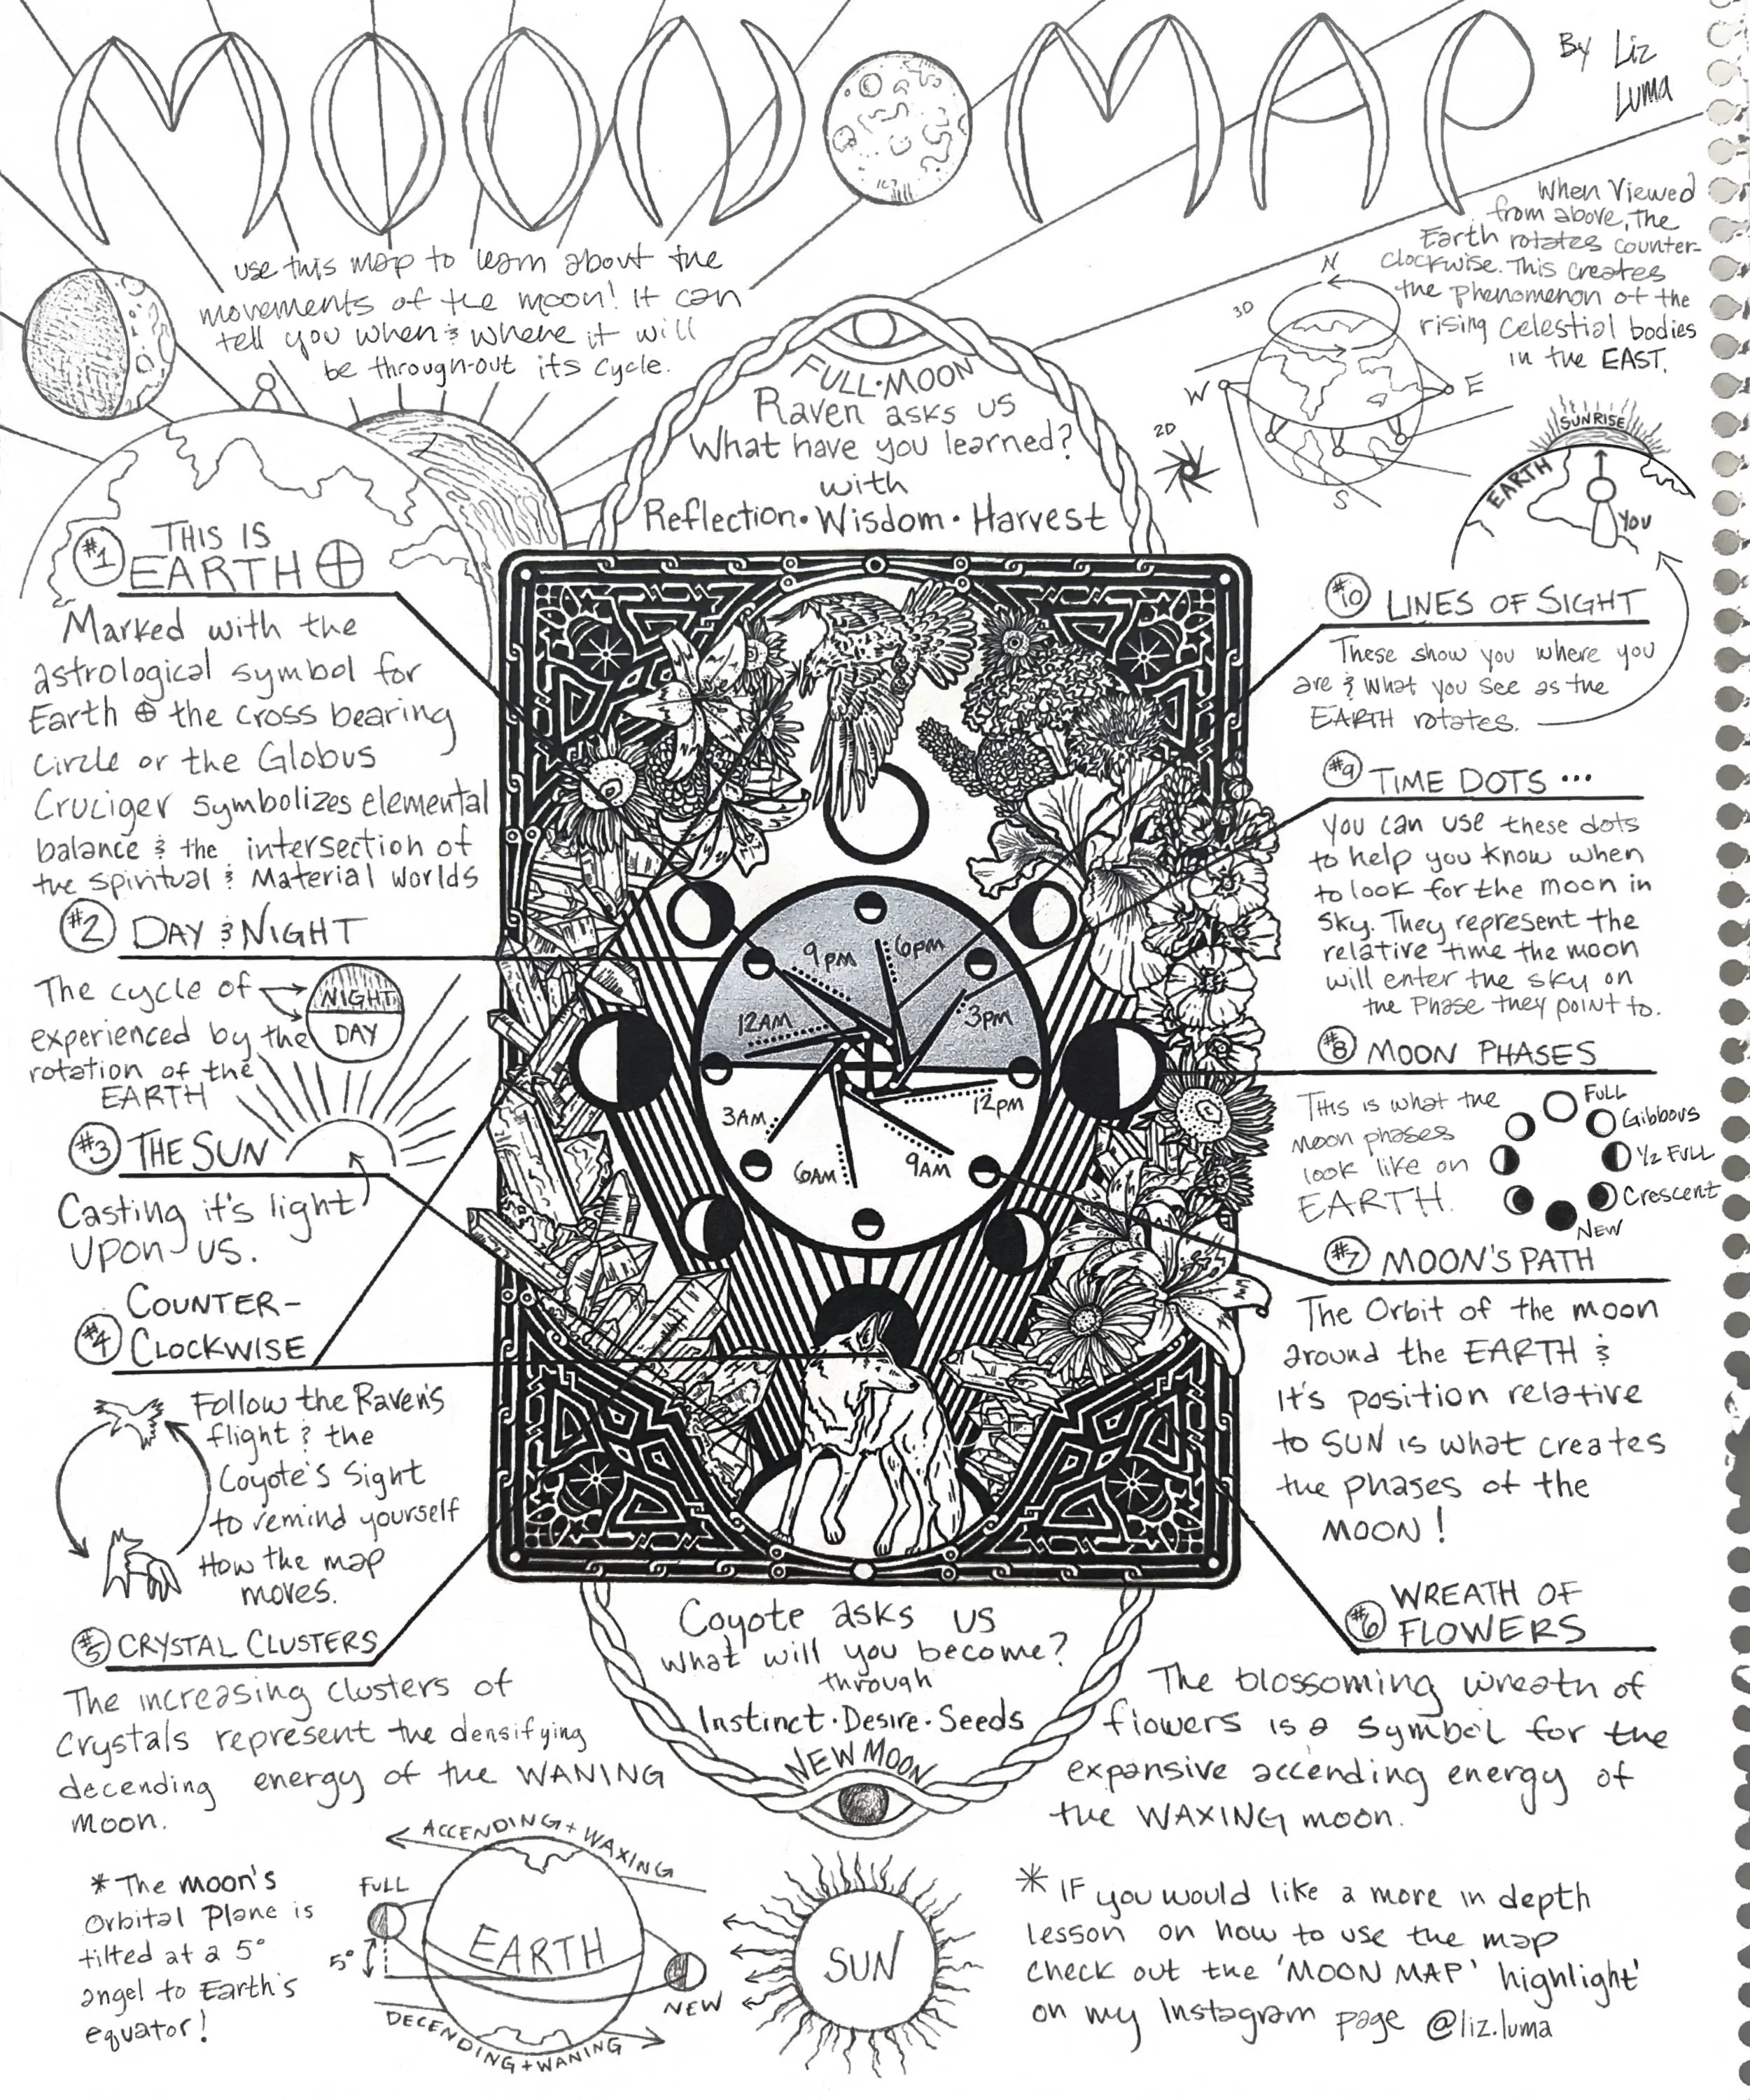 MOON MAP
By Liz
Luma
use this map to learn about the
movements of the moon! It can
tell you when & where it will
be through-out its cycle.
When Viewed
from above, the
Earth rotates counter-
clockwise. This creates
the phenomenon of the
rising celestial bodies
in the EAST.
3D
N
W
E
S
2D
SUNRISE
EARTH
YOU
FULL·MOON
Raven asks us
What have you learned?
with
Reflection·Wisdom·Harvest
#1 THIS IS
EARTH ⊕
Marked with the
astrological symbol for
Earth ⊕ the cross bearing
circle or the Globus
Cruciger symbolizes elemental
balance & the intersection of
the spiritual & Material worlds
#2 DAY & NIGHT
The cycle of
experienced by the
rotation of the
EARTH
NIGHT
DAY
#3 THE SUN
Casting it's light
upon us.
#4 COUNTER-
CLOCKWISE
Follow the Raven's
flight & the
Coyote's Sight
to remind yourself
How the map
moves.
#5 CRYSTAL CLUSTERS
The increasing clusters of
Crystals represent the densifying
decending energy of the WANING
moon.
9pm
6pm
12AM
3pm
3AM
12pm
6AM
9AM
#10 LINES OF SIGHT
These show you where you
are & what you see as the
EARTH rotates.
#9 TIME DOTS ...
You can use these dots
to help you know when
to look for the moon in
sky. They represent the
relative time the moon
will enter the sky on
the Phase they point to.
#8 MOON PHASES
This is what the
moon phases
look like on
EARTH.
FULL
Gibbous
1/2 FULL
Crescent
NEW
#7 MOON'S PATH
The Orbit of the moon
around the EARTH &
It's position relative
to SUN is what creates
the phases of the
MOON!
#6 WREATH OF
FLOWERS
The blossoming wreath of
flowers is a symbol for the
expansive accending energy of
the WAXING moon.
Coyote asks us
what will you become?
through
Instinct·Desire·Seeds
NEW MOON
* The moon's
Orbital Plane is
tilted at a 5°
angel to Earth's
equator!
ACCENDING + WAXING
FULL
5°
EARTH
NEW
DECENDING + WANING
SUN
* IF you would like a more in depth
lesson on how to use the map
check out the 'MOON MAP' highlight'
on my Instagram page @liz.luma